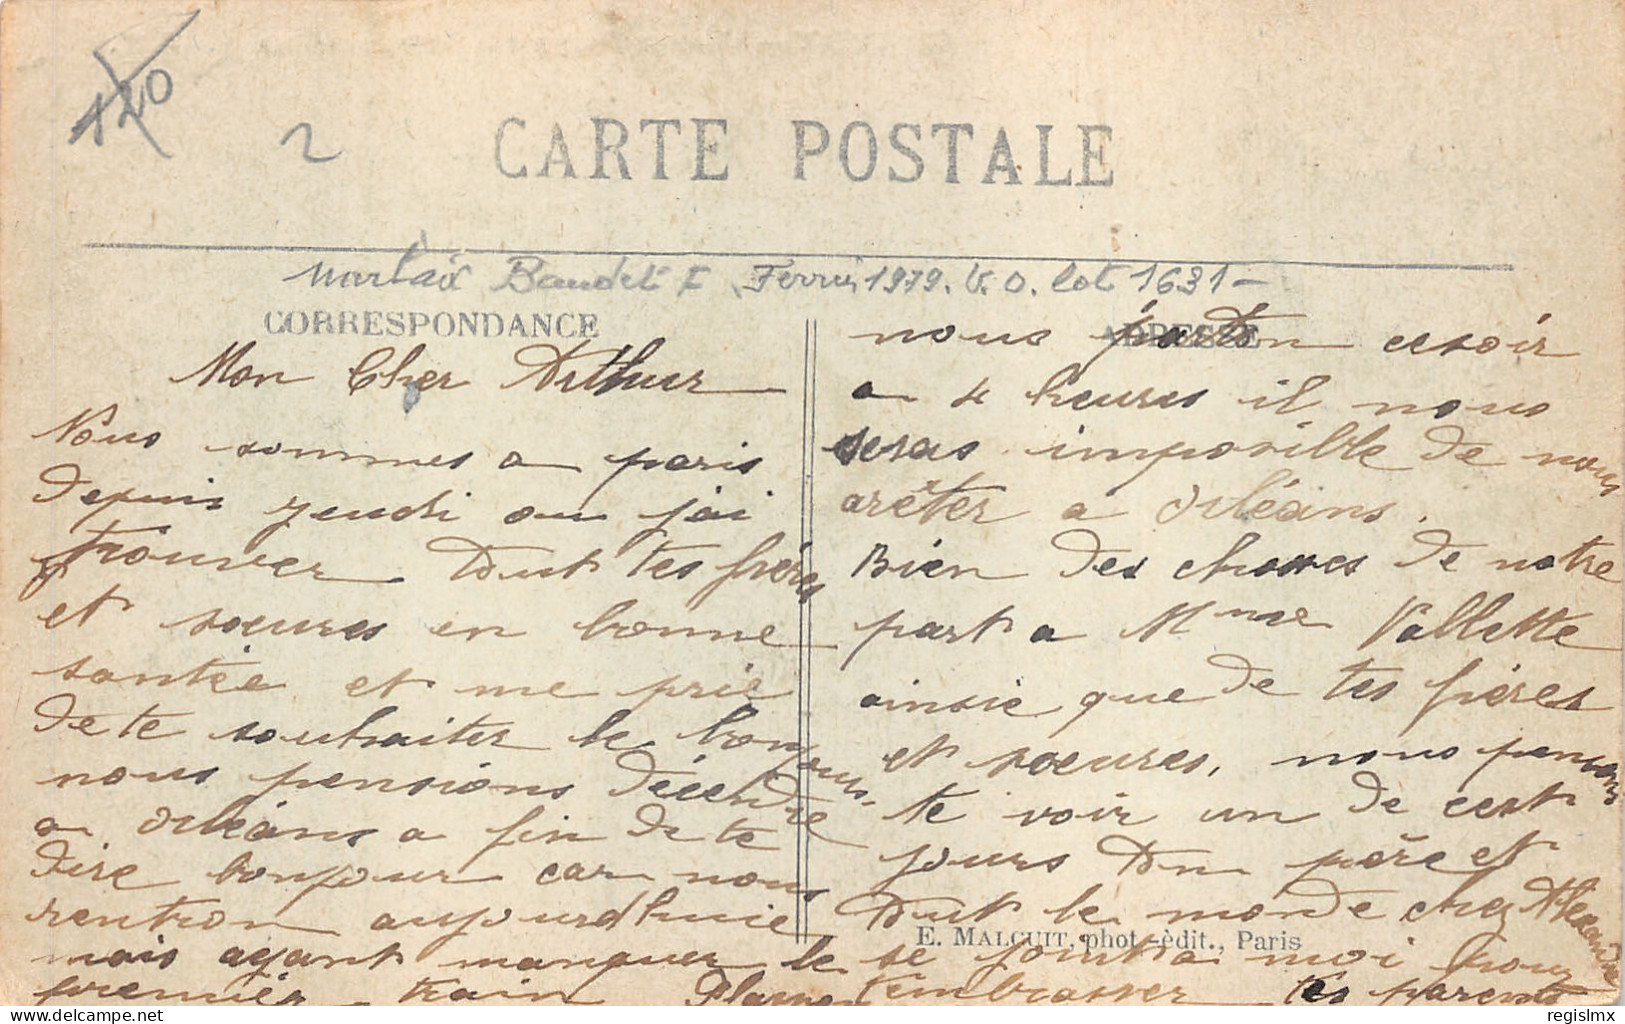 120
2
CARTE POSTALE
Février 1979. V.O. lot 1631-
CORRESPONDANCE
ADRESSE
Mon Cher Arthur
Nous sommes a paris
depuis jeudi ou jai
trouver tout tes frères
et soeures en bonne
santée et me prie
de te souhaiter le bonjour.
nous pensions décendre
a Orléans a fin de te
dire bonjour car nous
rentron aujourdhuie
mais ayant manquer le
premier train
nous parton cesoir
a 4 heures il nous
seras imposible de nous
arêter a Orléans.
Bien des chosses de notre
part a Mme Vallette
ainsie que de tes frères
et soeures, nous pensons
te voir un de cest
jours ton père et
tout le monde chez Alexandre
se joint a moi pour
t'embrasser tes parents
E. MALCUIT, phot.-édit., Paris
regislmx
delcampe.net